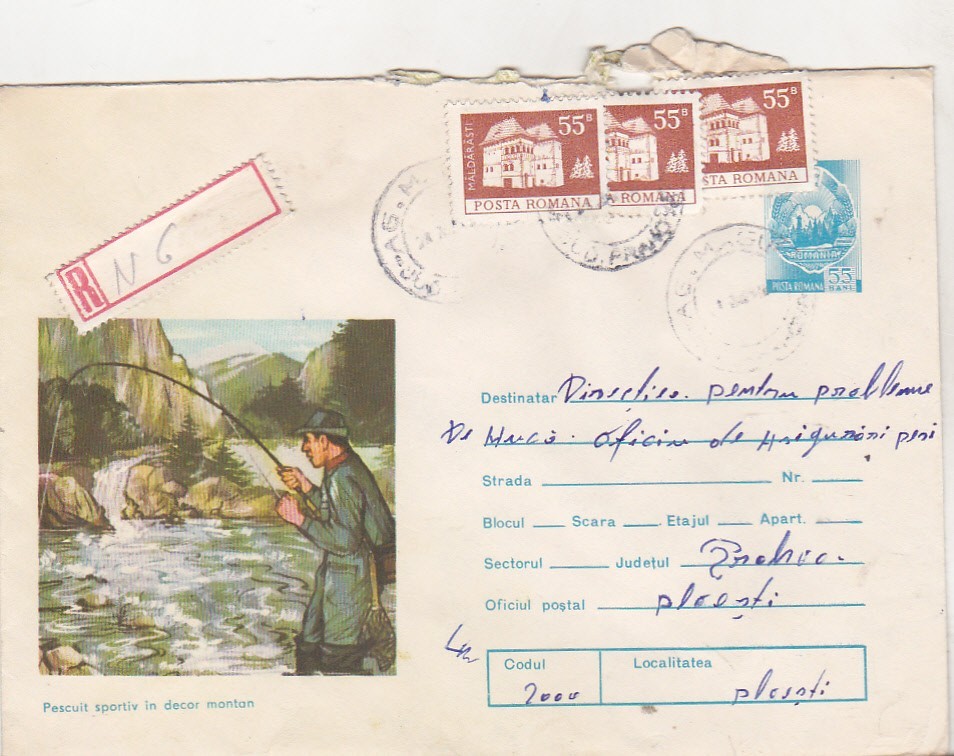 MĂLDĂRĂȘTI
55 B
POSTA ROMANA
55 B
ROMANA
55 B
STA ROMANA
ROMANIA
POSTA ROMANA 55 BANI
R N 6
Destinatar Direcției pentru probleme
De Muncă. Oficiu de
Strada Nr.
Blocul Scara Etajul Apart.
Sectorul Județul Prahova
Oficiul poștal ploești
Codul Localitatea
2000 ploești
Pescuit sportiv în decor montan